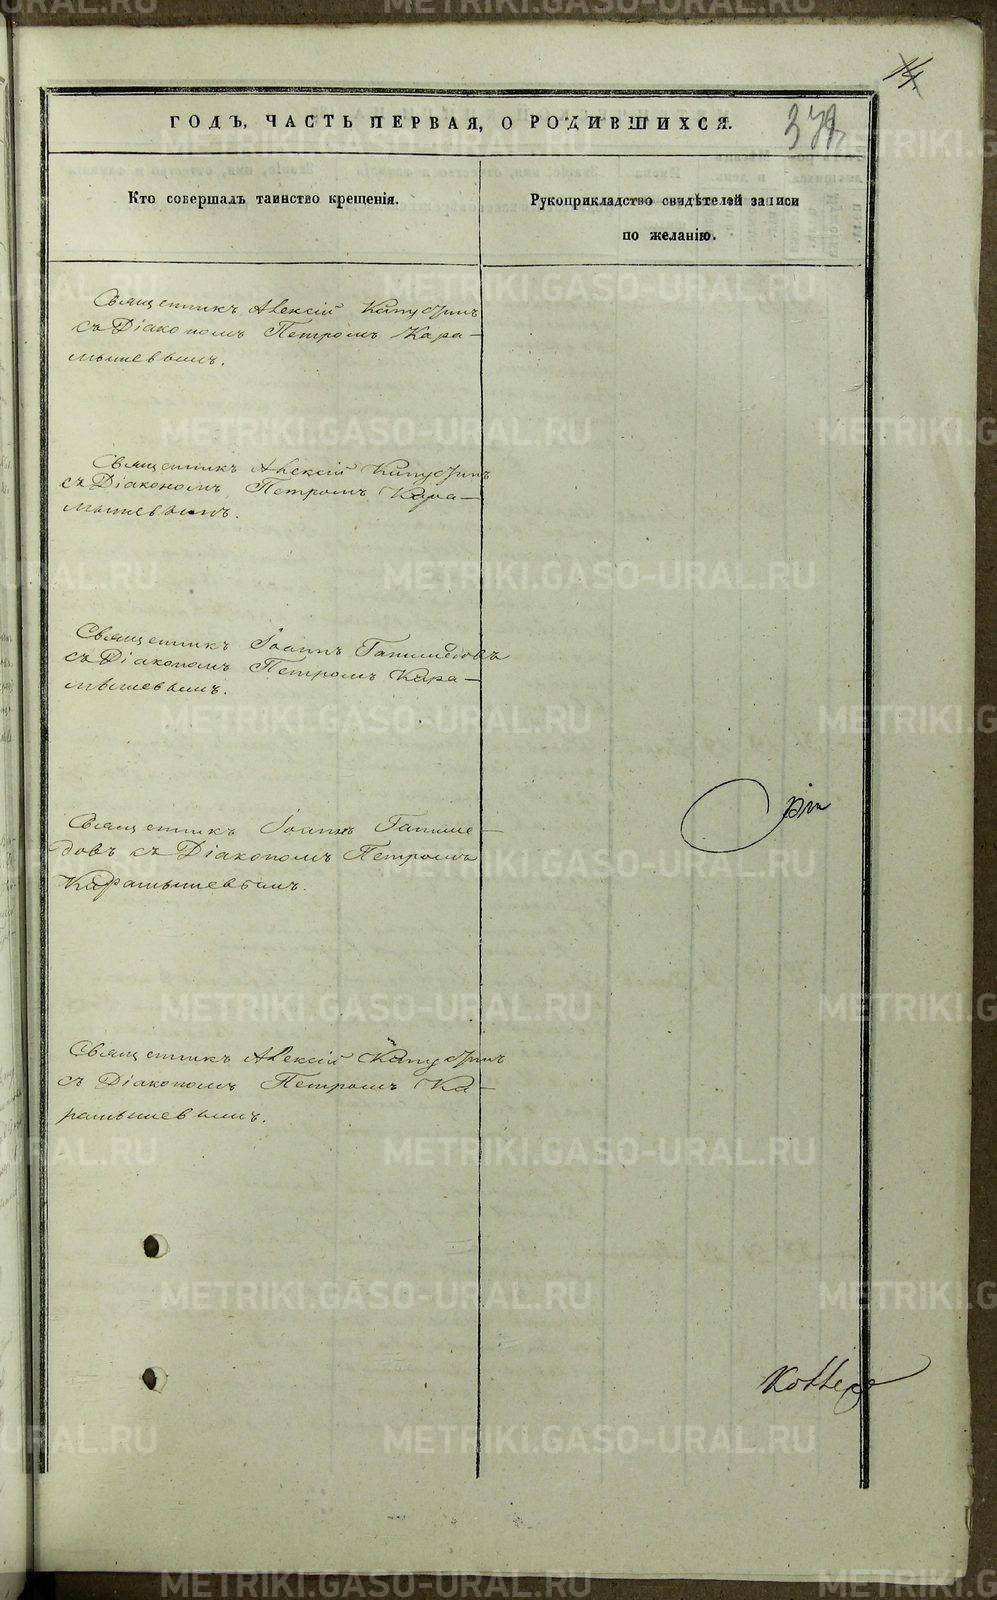 14
378
ГОДЪ, ЧАСТЬ ПЕРВАЯ, О РОДИВШИХСЯ.
Кто совершалъ таинство крещенія.
Рукоприкладство свидѣтелей записи
по желанію.
Священникъ Алексій Капустинъ
съ Діакономъ Петромъ Кара-
мышевымъ.
Священникъ Алексій Капустинъ
съ Діакономъ Петромъ Кара-
мышевымъ.
Священникъ Іоаннъ
съ Діакономъ Петромъ Кара-
мышевымъ.
Священникъ Іоаннъ
съ Діакономъ Петромъ
Карамышевымъ.
Священникъ Алексій Капустинъ
съ Діакономъ Петромъ Ка-
рамышевымъ.
METRIKI.GASO-URAL.RU